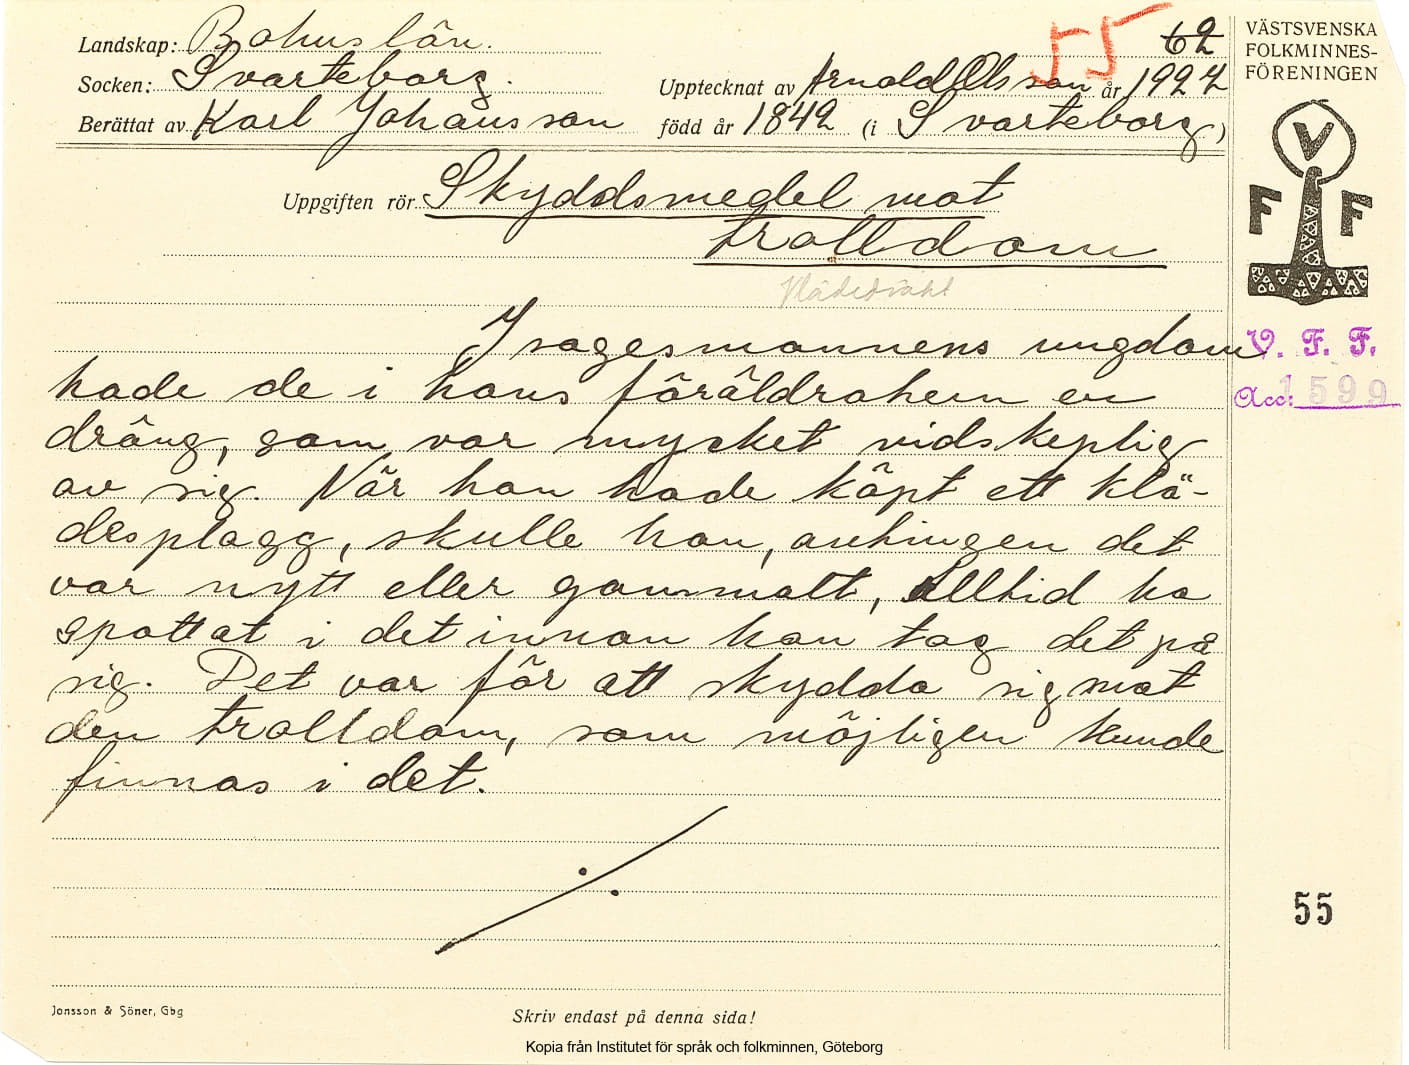 Landskap: Bohuslän.
Socken: Svarteborg.
Berättat av Karl Johansson
55
62
Upptecknat av Arnold Olsson år 1924
född år 1842 (i Svarteborg)
Uppgiften rör Skyddsmedel mot
trolldom
Klädedräkt
I sagesmannens ungdom
hade de i hans föräldrahem en
dräng, som var mycket vidskeplig
av sig. När han hade köpt ett klä-
desplagg, skulle han, antingen det
var nytt eller gammalt, alltid ha
spottat i det innan han tog det på
sig. Det var för att skydda sig mot
den trolldom, som möjligen kunde
finnas i det.
VÄSTSVENSKA
FOLKMINNES-
FÖRENINGEN
V
F F
V. F. F.
Acc: 1599
55
Jonsson & Söner, Gbg
Skriv endast på denna sida!
Kopia från Institutet för språk och folkminnen, Göteborg